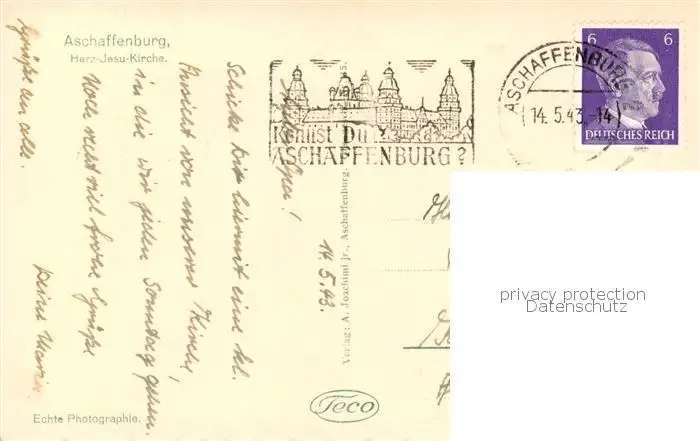 Aschaffenburg,
Herz-Jesu-Kirche.
14.5.43.
Schicke Dir hiermit eine kl.
Ansicht von unserer Kirche,
in die wir jeden Sonntag gehen.
Noch recht viel frohe Grüße
Deine Maria.
Grüße an alle.
Echte Photographie.
Kennst Du
ASCHAFFENBURG?
ASCHAFFENBURG
14.5.43.-14
6 6
DEUTSCHES REICH
Verlag: A. Joachimi jr., Aschaffenburg.
Teco
privacy protection
Datenschutz